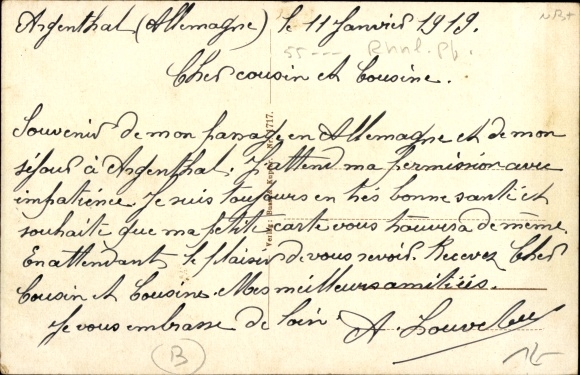 Argenthal (Allemagne) le 11 Janvier 1919.
55 --- Rhnl. Pf.
Cher cousin et Cousine.
Souvenir de mon passage en Allemagne et de mon
séjour à Argenthal. J'attend ma permission avec
impatience. Je suis toujours en très bonne santé et
souhaite que ma petite carte vous trouvera de même.
En attendant le plaisir de vous revoir. Recevez Cher
Cousin et Cousine. Mes meilleurs amitiés.
Je vous embrasse de loin
A. Louvel
B
Verlag:
717.